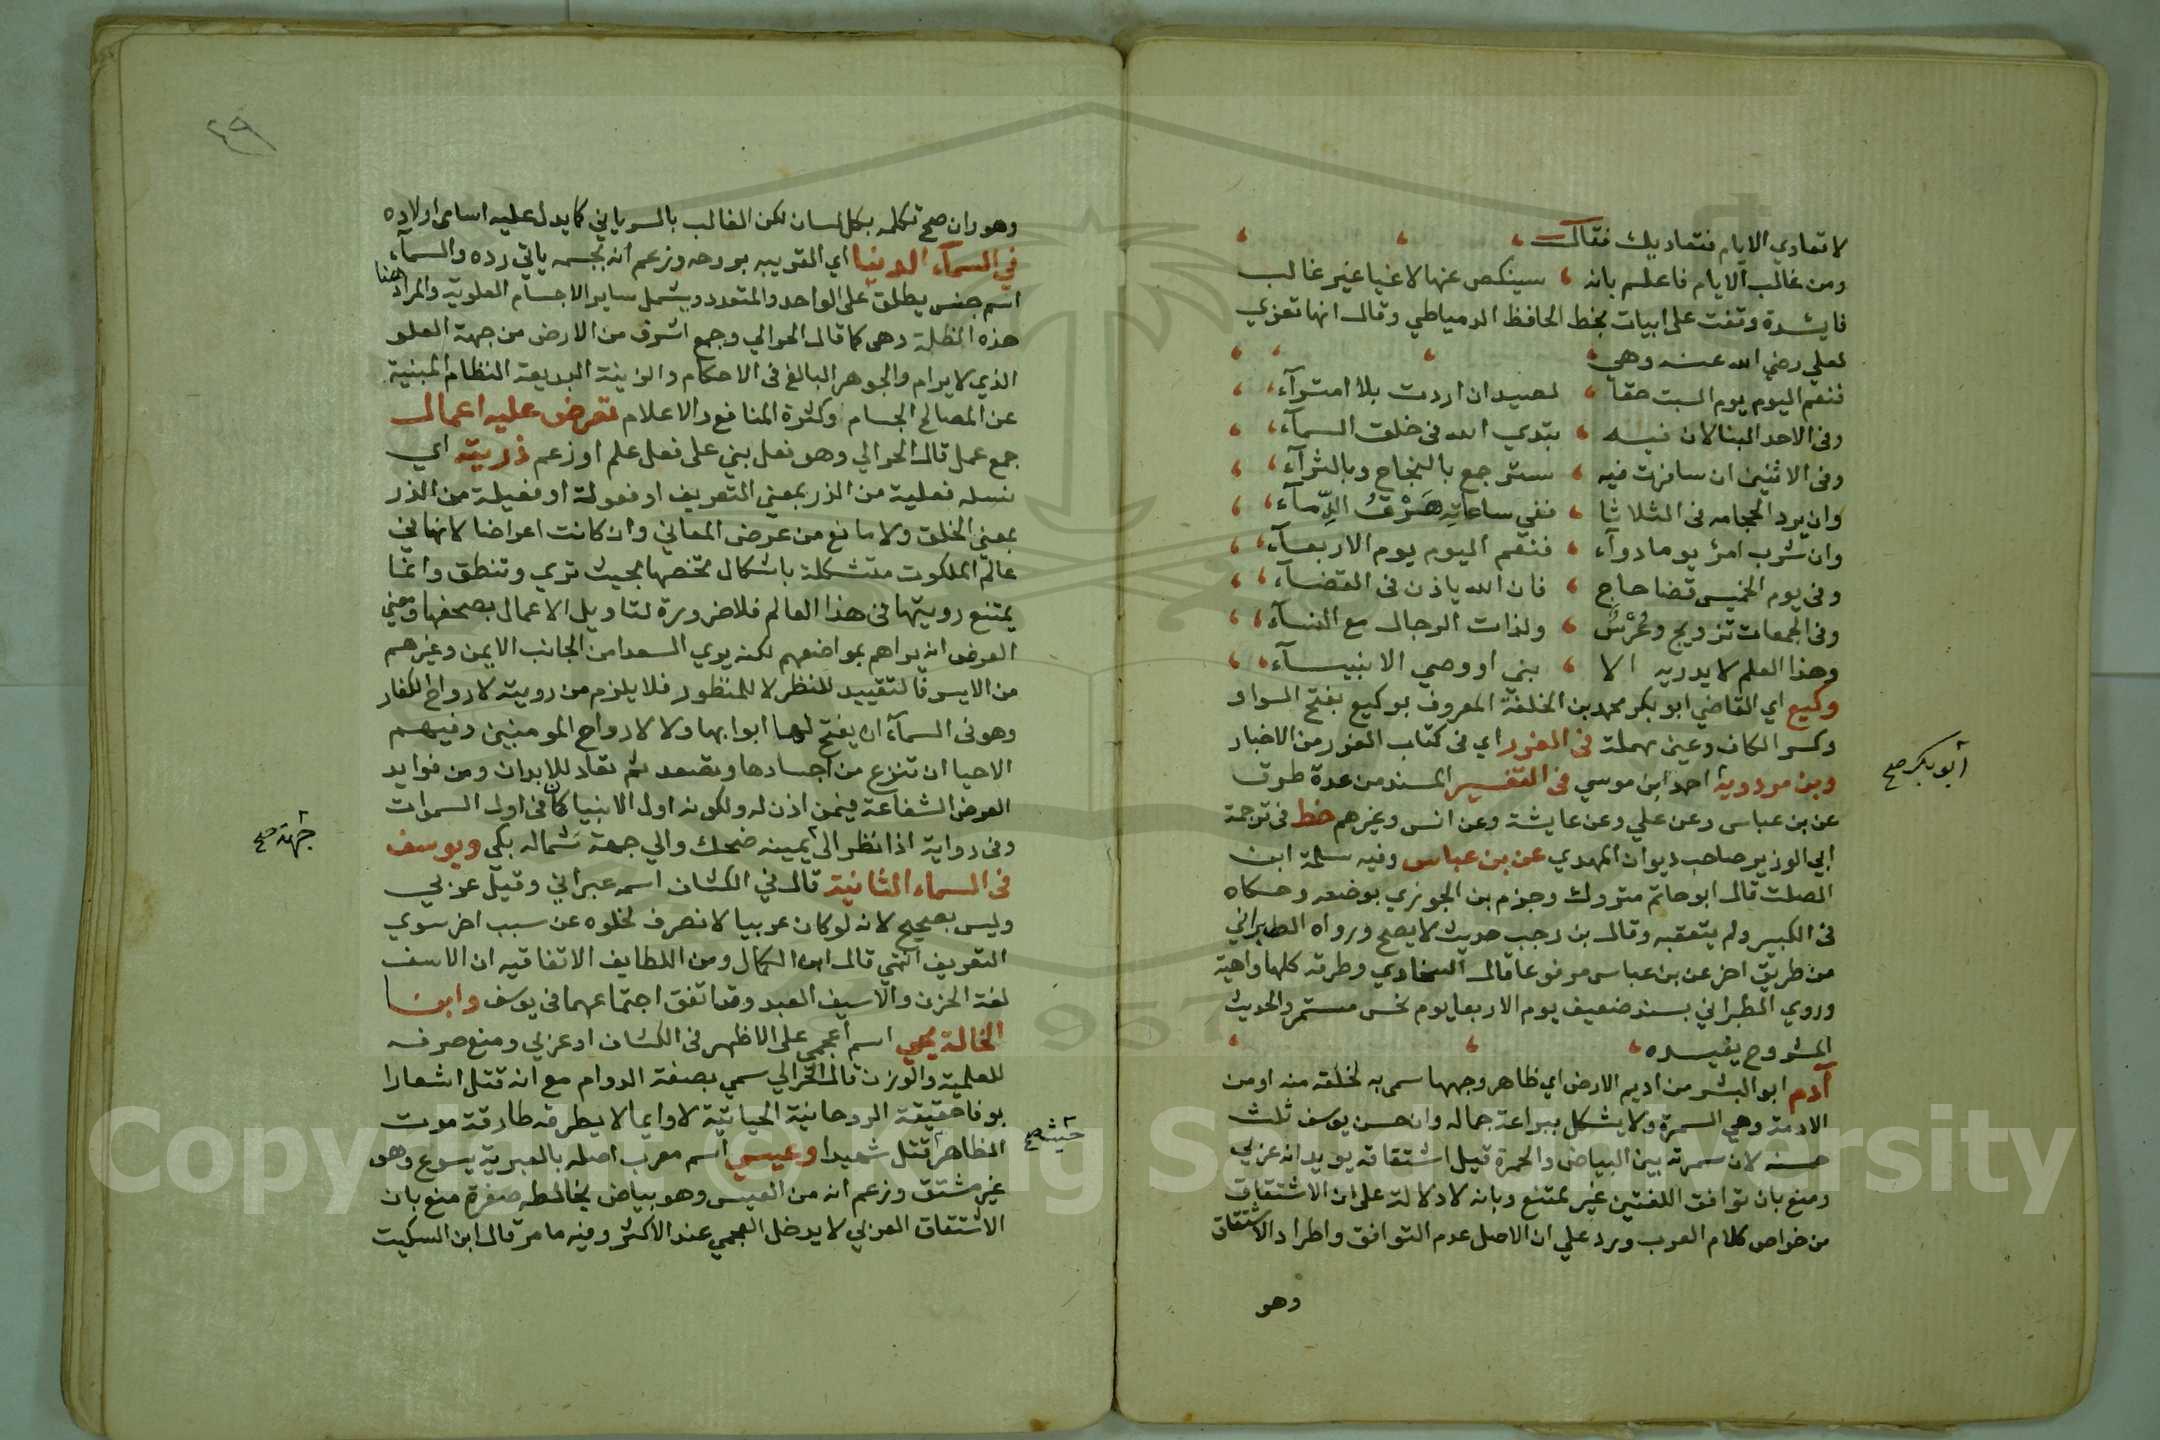 لا تعادي الايام فتعاديك فقال
ومن غالب الايام فاعلم بانه سينكص عنها لاغيا غير غالب
فايدة وقفت على ابيات بخط الحافظ الدمياطي وقال انها تعزي
لعلي رضي الله عنه وهي
فنعم اليوم يوم السبت حقا لصيد ان اردت بلا امترآء
وفي الاحد البنا لان فيه بتدي الله في خلق السمآء
وفي الاثنين ان سافرت فيه سترجع بالنجاح وبالثرآء
وان يرد الحجامه في الثلاثا ففي ساعاته هَرْقُ الدِّمآء
وان شرب امرئ يوما دوآء فنعم اليوم يوم الاربعآء
وفي يوم الخميس قضا حاج فان الله ياذن في القضآء
وفي الجمعات تزويج وعُرْسٌ ولذات الرجال مع النسآء
وهذا العلم لا يدريه الا بني او وصي الانبيآء
وكيع اي القاضي ابو بكر محمد بن الخلفة المعروف بوكيع بفتح الواو
وكسر الكاف وعين مهملة في الغرر اي في كتاب الغرر من الاخبار
وبن مردوية احمد ابن موسي في التفسير المسند من عدة طرق
ابو بكر صح
عن بن عباس وعن علي وعن عايشة وعن انس وغيرهم خط في ترجمة
ابي الوزير صاحب ديوان المهدي عن بن عباس وفيه سلمة ابن
الصلت قال ابو حاتم متروك وجزم بن الجوزي بوضعه وحكاه
في الكبير ولم يتعقبه وقال بن رجب حديث لا يصح ورواه الطبراني
من طريق اخر عن بن عباس مرفوعا قال السخاوي وطرقه كلها واهية
وروي الطبراني بسند ضعيف يوم الاربعا يوم نحس مستمر والحديث
المشروح يفيده
آدم ابو البشر من اديم الارض اي ظاهر وجهها سمي به لخلقه منه او من
الادمة وهي السمرة ولا يشكل ببراعة جماله وان حسن يوسف ثلث
حسنه لان سمرته بين البياض والحمرة قيل اشتقاقه يويد انه عزبي
ومنع بان توافق اللغتين غير ممتنع وبانه لا دلالة على ان الاشتقاق
من خواص كلام العرب ويرد علي ان الاصل عدم التوافق واطراد الاشتقاق
وهو
٤٩
وهو وان صح تكلمه بكل لسان لكن الغالب بالسرياني كما يدل عليه اسامي اولاده
في السمآء الدنيا اي القريبه بروحه وزعم انه بجسمه ياتي رده والسمآء
اسم جنس يطلق على الواحد والمتعدد ويشمل ساير الاجسام العلوية والمراد هنا
هذه المظلة وهي كما قال الحرالي وجمع اشرف من الارض من جهة العلو
الذي لا يرام والجوهر البالغ في الاحكام والزينة البديعة النظام المبنية
عن المصالح الجسام وكثرة المنافع والاعلام تعرض عليه اعمال
جمع عمل قال الحرالي وهو فعل بني على فعل علم او زعم ذريته اي
نسله فعلية من الذر بمعني التعريف او فعولة او فعيلة من الذر
بمعني الخلق ولا مانع من عرض المعاني وان كانت اعراضا لانها في
عالم الملكوت متشكلة باشكال تخصها بحيث تري وتنطق وانما
يمتنع رويتها في هذا العالم فلا ضرورة لتاويل الاعمال بصحفها ومعني
العرض انه يراهم بمواضعهم لكنه يري السعدا من الجانب الايمن وغيرهم
من الايسر فالتقييد للنظر لا للمنظور فلا يلزم من رويته لارواح الكفار
وهو في السمآء ان يفتح لها ابوابها ولا لارواح المومنين وفيهم
الاحيا ان تنزع من اجسادها وتصعد ثم تعاد للابدان ومن فوايد
العرض الشفاعة فيمن اذن له ولكونه اول الانبيا كان في اول السموات
وفي رواية اذا نظر الى يمينه ضحك والي جهة شماله بكي ويوسف
جهة صح
في السماء الثانية قال في الكشاف اسمه عبراني وقيل عربي
وليس بصحيح لانه لو كان عربيا لانصرف لخلوه عن سبب اخر سوي
التعريف انتهي قال ابن الكمال ومن اللطايف الاتفاقيه ان الاسف
لغة الحزن والاسيف العبد وقد اتفق اجتماعهما في يوسف وابنا
الخالة يحيي اسم اعجمي على الاظهر في الكشاف او عربي ومنع صرفه
للعلمية والوزن قال الحرالي سمي بصفة الدوام مع انه قتل اشعارا
بوفا حقيقة الروحانية الحياتية لا وايما لا يطرقه طارقة موت
حيث صح
الظاهر قتل شهيدا وعيسي اسم معرب اصله بالعبرية يسوع وهو
غير مشتق وزعم انه من العيس وهو بياض يخالطه صفرة منع بان
الاشتقاق العربي لا يدخل العجمي عند الاكثر وفيه ما مر قال ابن السكيت
Copyright © King Saud University
1957